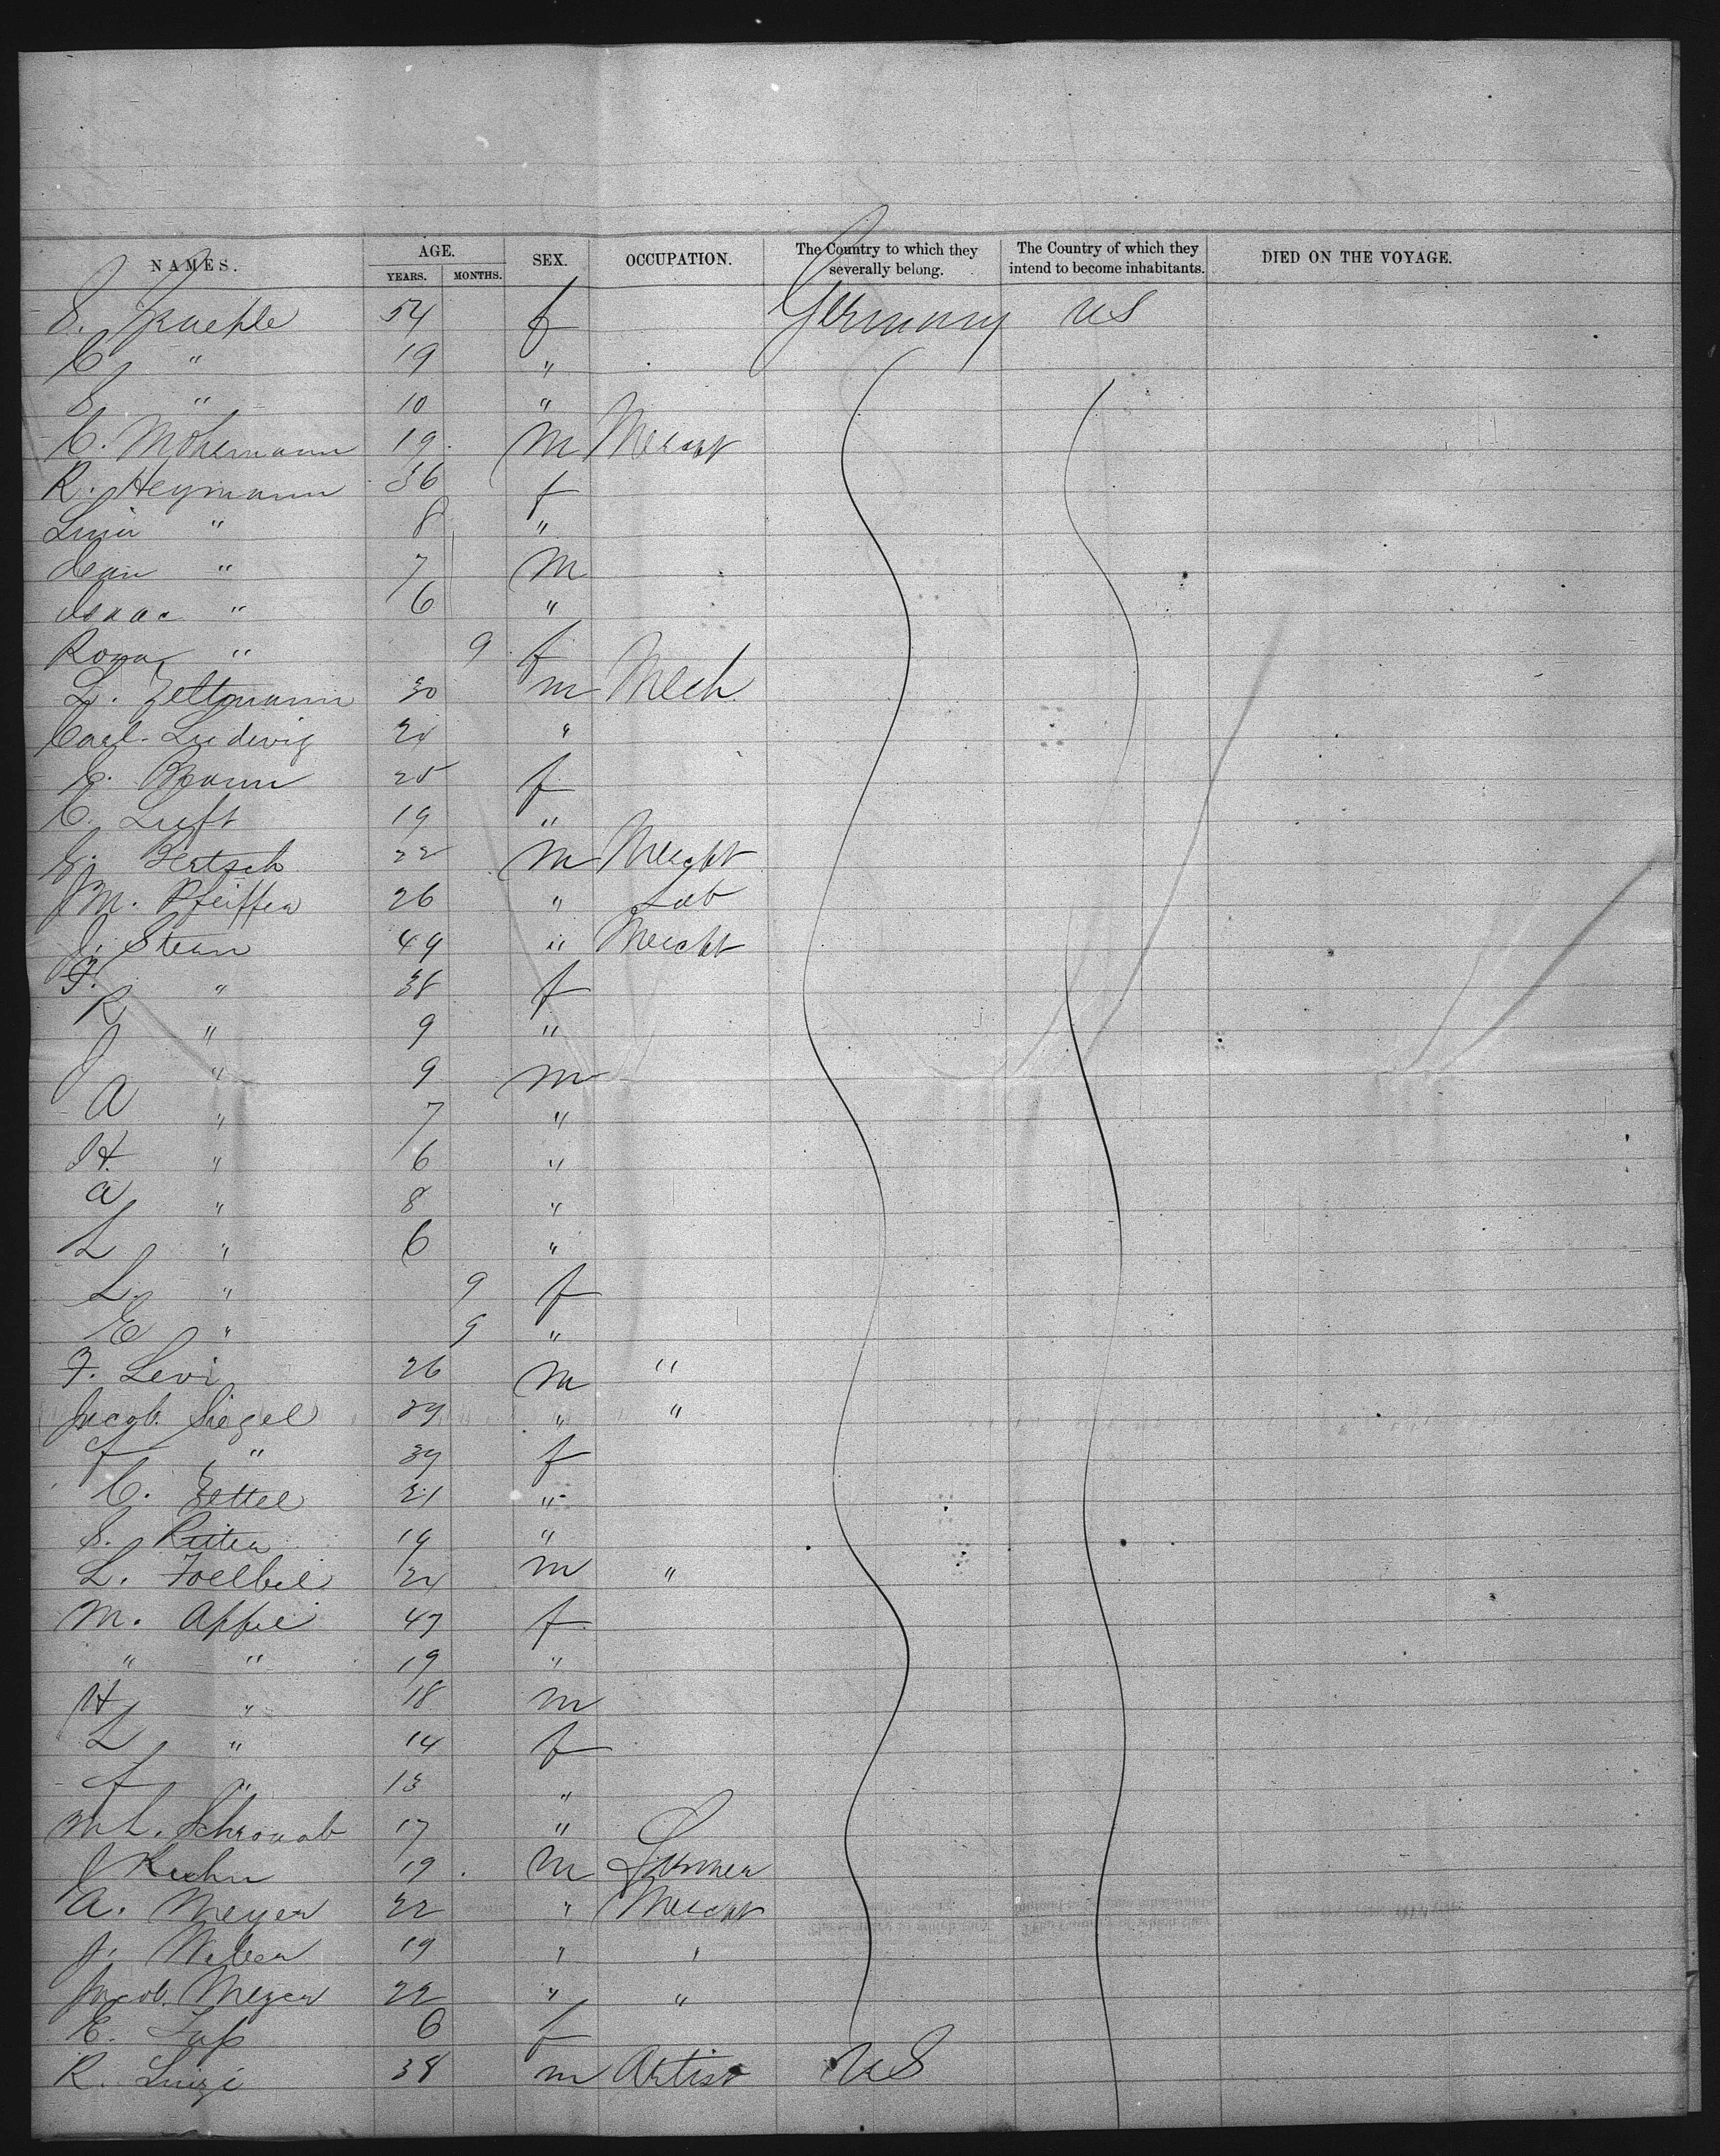 NAMES. AGE. YEARS. MONTHS. SEX. OCCUPATION. The Country to which they severally belong. The Country of which they intend to become inhabitants. DIED ON THE VOYAGE.
S. Kuehle 54 f Germany US
C " 19 "
S " 10 "
C. Mohrmann 19 m Mercht
R. Heymann 36 f
Lina " 8 "
" 7 m
Isaac " 6 "
Rosa " 9 f
L. Zeltmann 30 m Mech
Carl Ludwig 24 "
C. Braun 25 f
C. Luft 19 "
G. Bertsch 22 m Mercht
M. Pfeiffer 26 " Lab
J. Stern 49 " Mercht
F. " 38 f
R " 9 "
J " 9 m
A " 7 "
H. " 6 "
A " 8 "
L " 6 "
L. " 9 f
E " 9 "
F. Levi 26 m "
Jacob Siegel 39 " "
f " 39 f
C. Zettel 21 "
S. Reiter 19 "
L. 24 m "
M. Appel 47 f
" " 19 "
H " 18 m
L " 14 f
f " 13 "
M L. Schronab 17 "
J Kuhn 19 m Farmer
A. Meyer 22 " Mercht
J. Weber 19 " "
Jacob Meyer 22 " "
E. 6 f
R. Luigi 38 m Artist US